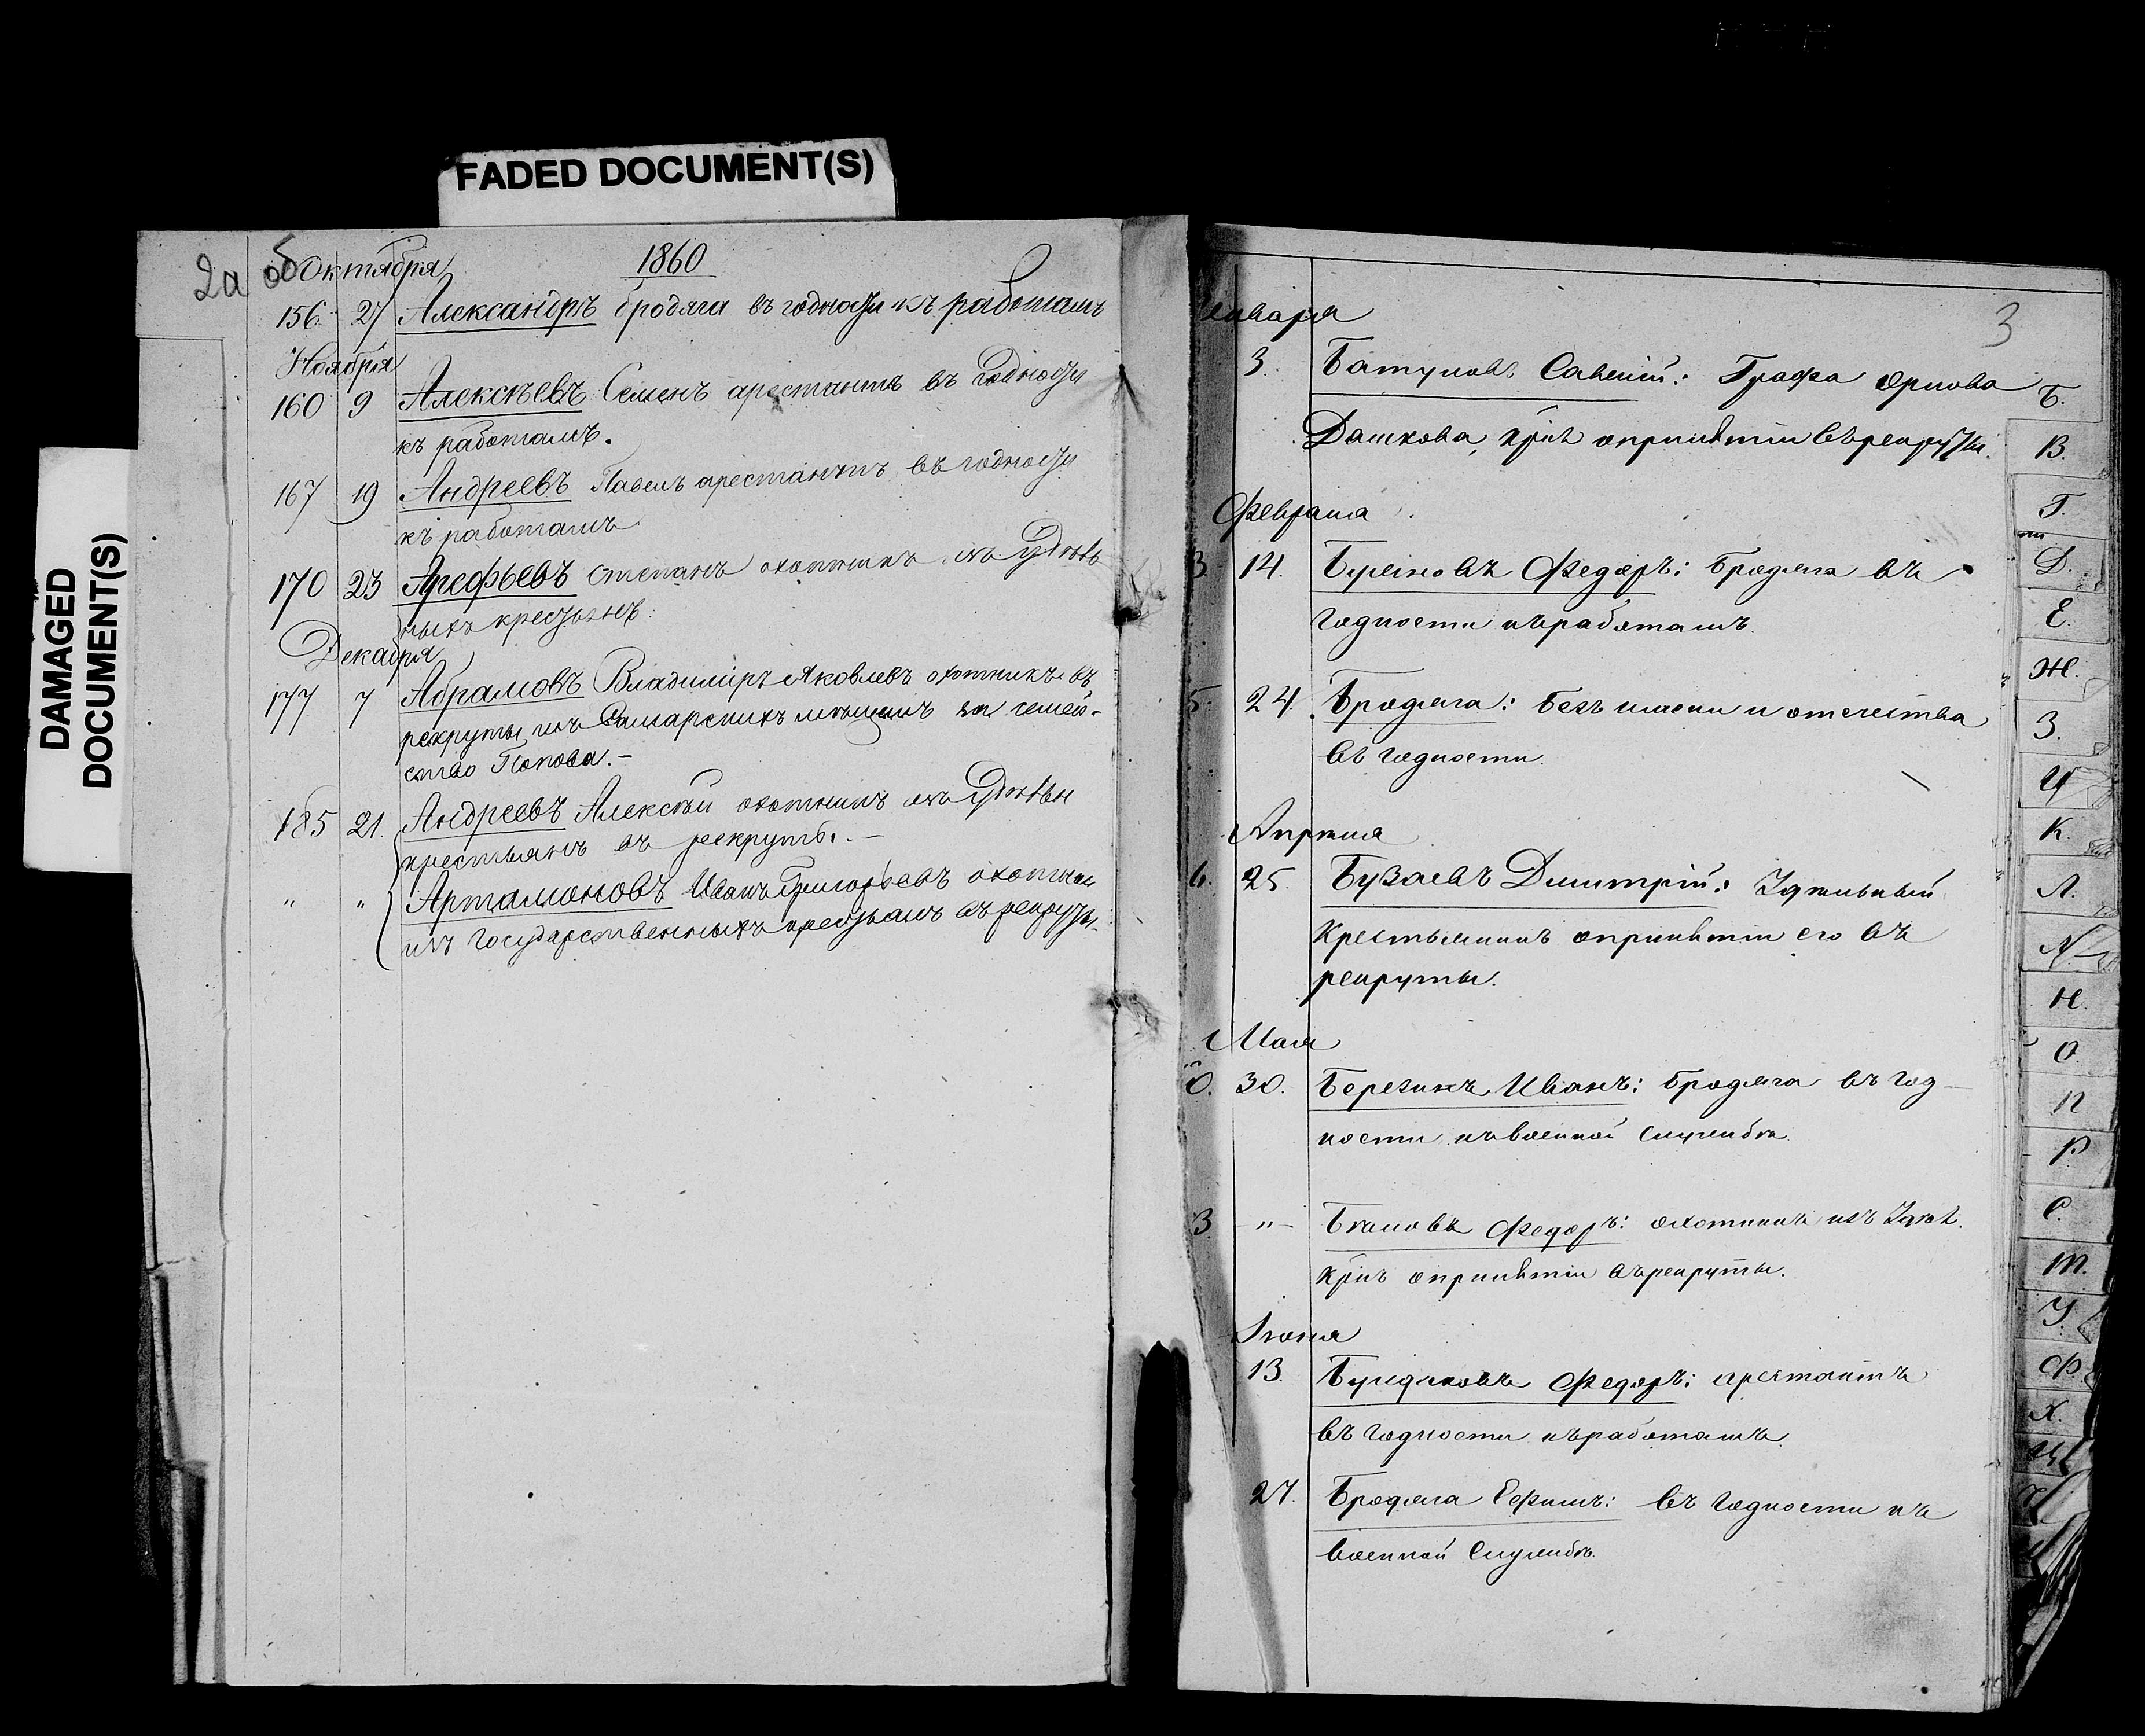 FADED DOCUMENT(S)
DAMAGED
DOCUMENT(S)
2а об
Октября
1860
156 27 Александръ бродяга въ годности къ работамъ
Ноября
160 9 Алексѣевъ Семенъ арестантъ въ годности
къ работамъ.
167 19 Андреевъ Павелъ арестантъ въ годности
къ работамъ
170 23 Арефьевъ Степанъ охотникъ изъ Удѣль
ныхъ крестьянъ.
Декабря
177 7 Абрамовъ Владимiръ Яковлевъ охотникъ въ
рекруты изъ Самарскихъ мѣщанъ за семей-
ство Попова.-
185 21. Андреевъ Алексѣй охотникъ изъ Удѣльн
крестьянъ въ рекруты.-
" " Артамоновъ Иванъ Григорьевъ охотник
изъ Государственныхъ крестьянъ въ рекруты.
3
Января
3. Батуновъ Савелiй: Графа Орлова
Дашкова, крiн о принятiи въ рекруты.
Февраля
3. 14. Федоръ: Бродяга въ
годности къ работамъ.
5. 24. Бродяга: безъ имени и отечества
въ годности.
Апрѣля
6. 25. Бузаевъ Димитрiй: Удѣльный
Крестьянинъ о принятiи его въ
рекруты.
Мая
0. 30. Березинъ Иванъ: бродяга въ год-
ности къ военной службѣ.
3 " Бѣловъ Федоръ: охотникъ изъ Удѣл.
крiнъ о принятiи въ рекруты.
Iюня
13. Федоръ: арестантъ
въ годности къ работамъ.
27. Бродяга Ефимъ: въ годности къ
военной службѣ.
Б.
В.
Г.
Д.
Е.
Ж.
З.
И
К.
Л.
М
Н.
О.
П
Р
С.
Т.
У.
Ф.
Х.